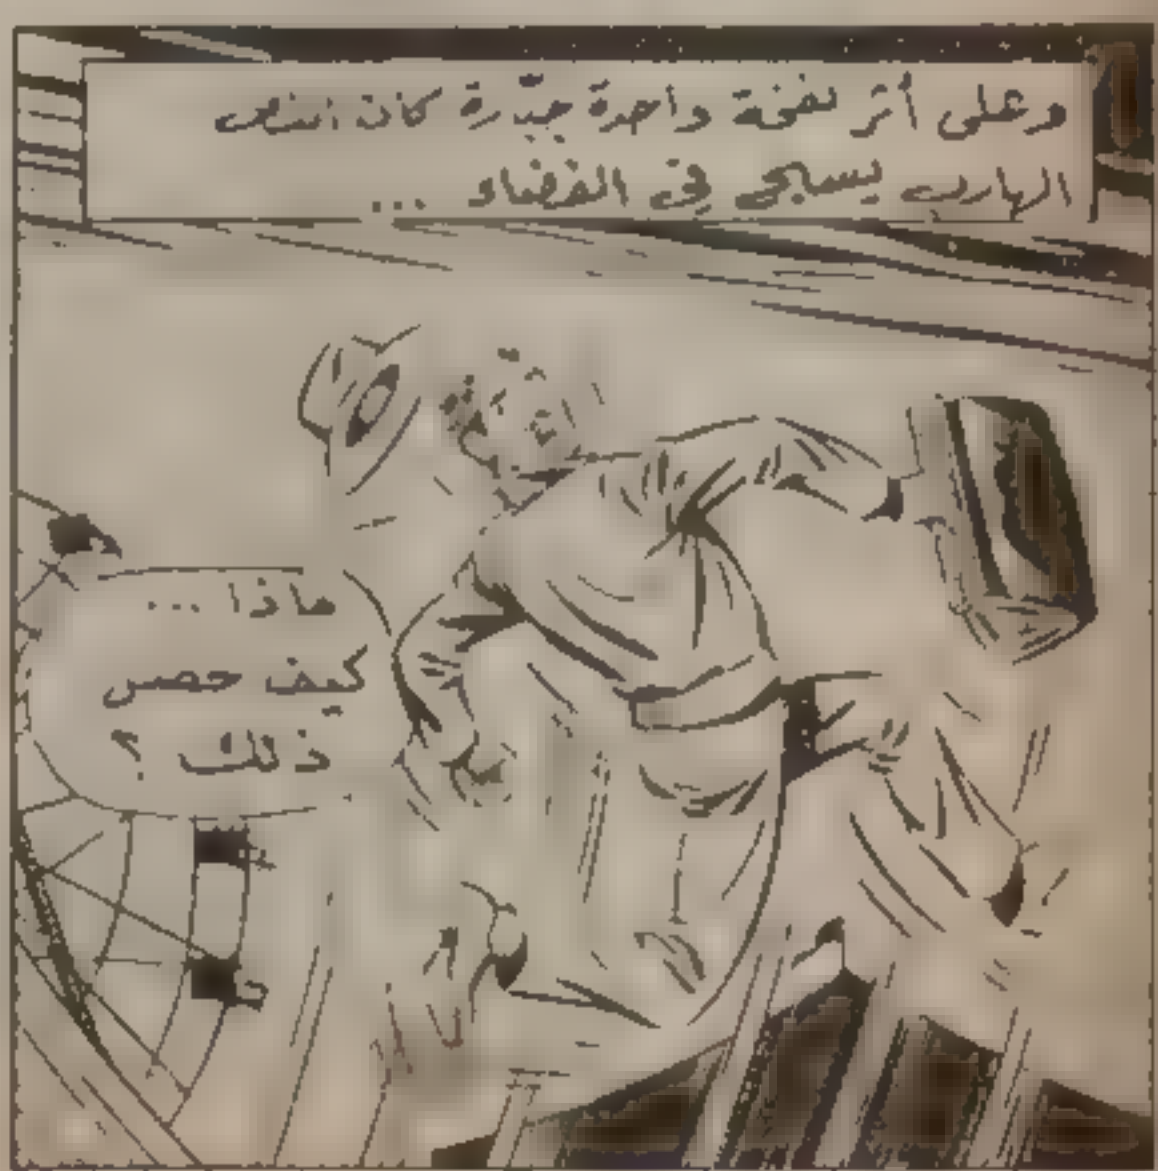 وعلى أثر نفخة واحدة جبّارة كان اللص
الهارب يسبح في الفضاء ...
ماذا ...
كيف حصل
ذلك ؟